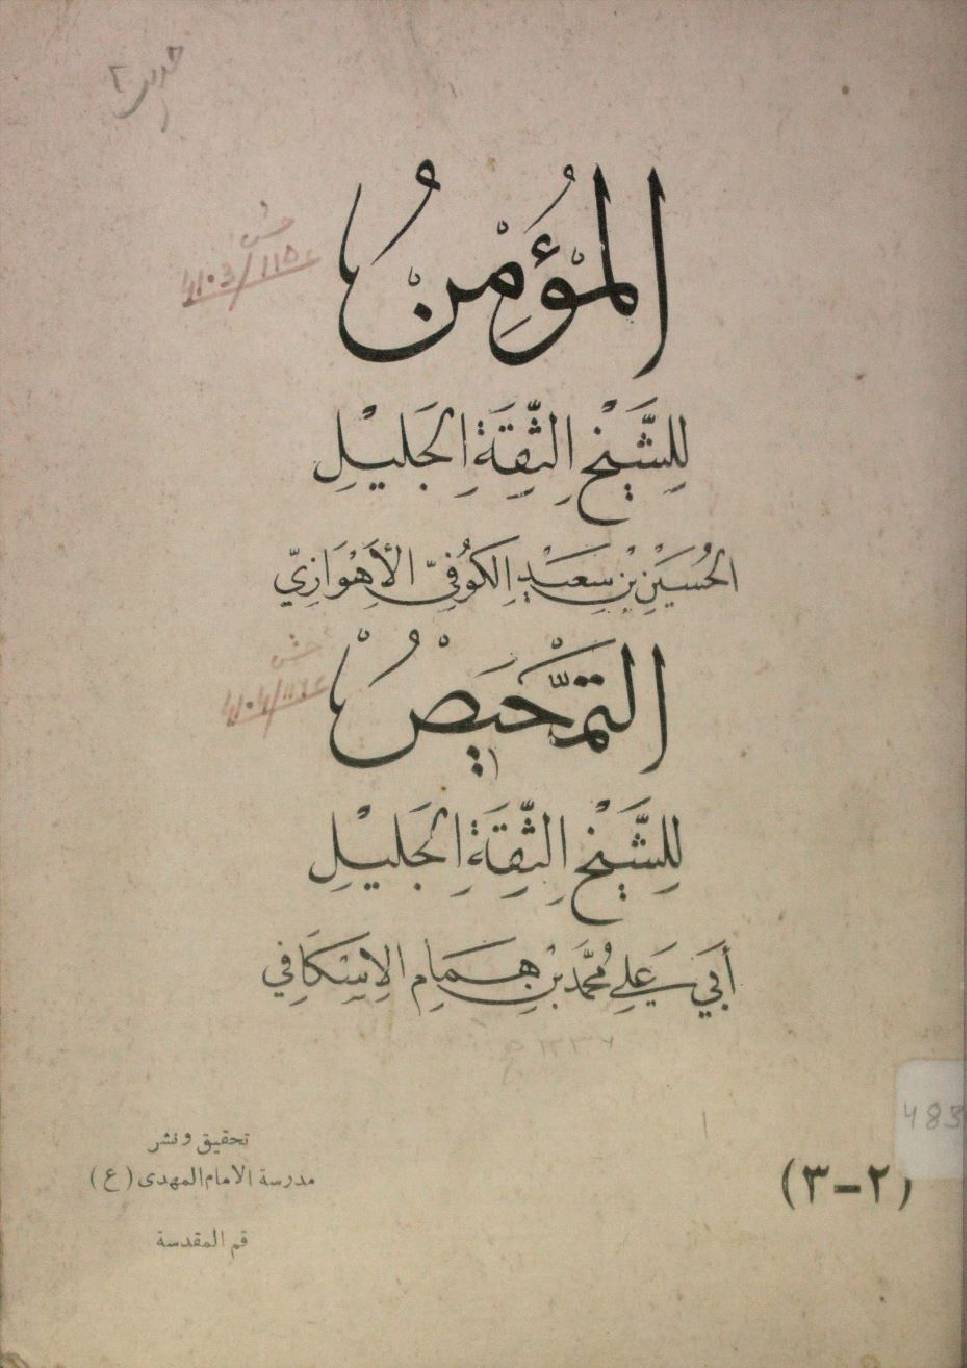 المُؤْمِنُ
لِلشَّيْخِ الثِّقَةِ الجَلِيْلِ
الحُسَيْنِ بْنِ سَعِيْدِ الكُوفِيِّ الأَهْوَازِيّ
التَّمْحِيْصُ
لِلشَّيْخِ الثِّقَةِ الجَلِيْلِ
أَبِي عَلِي مُحَمَّد بْنِ هَمَامِ الإِسْكَافِي
تحقيق ونشر
مدرسة الامام المهدى (ع)
قم المقدسة
(٢-٣)
483